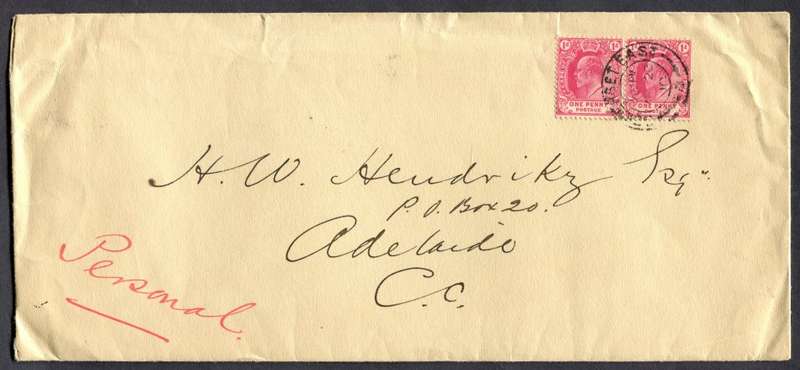 1d 1d
ONE PENNY ONE PENNY
POSTAGE
EAST
H. W. Hendrikz Esqr.
P. O. Box 20.
Adelaide
C. C.
Personal.